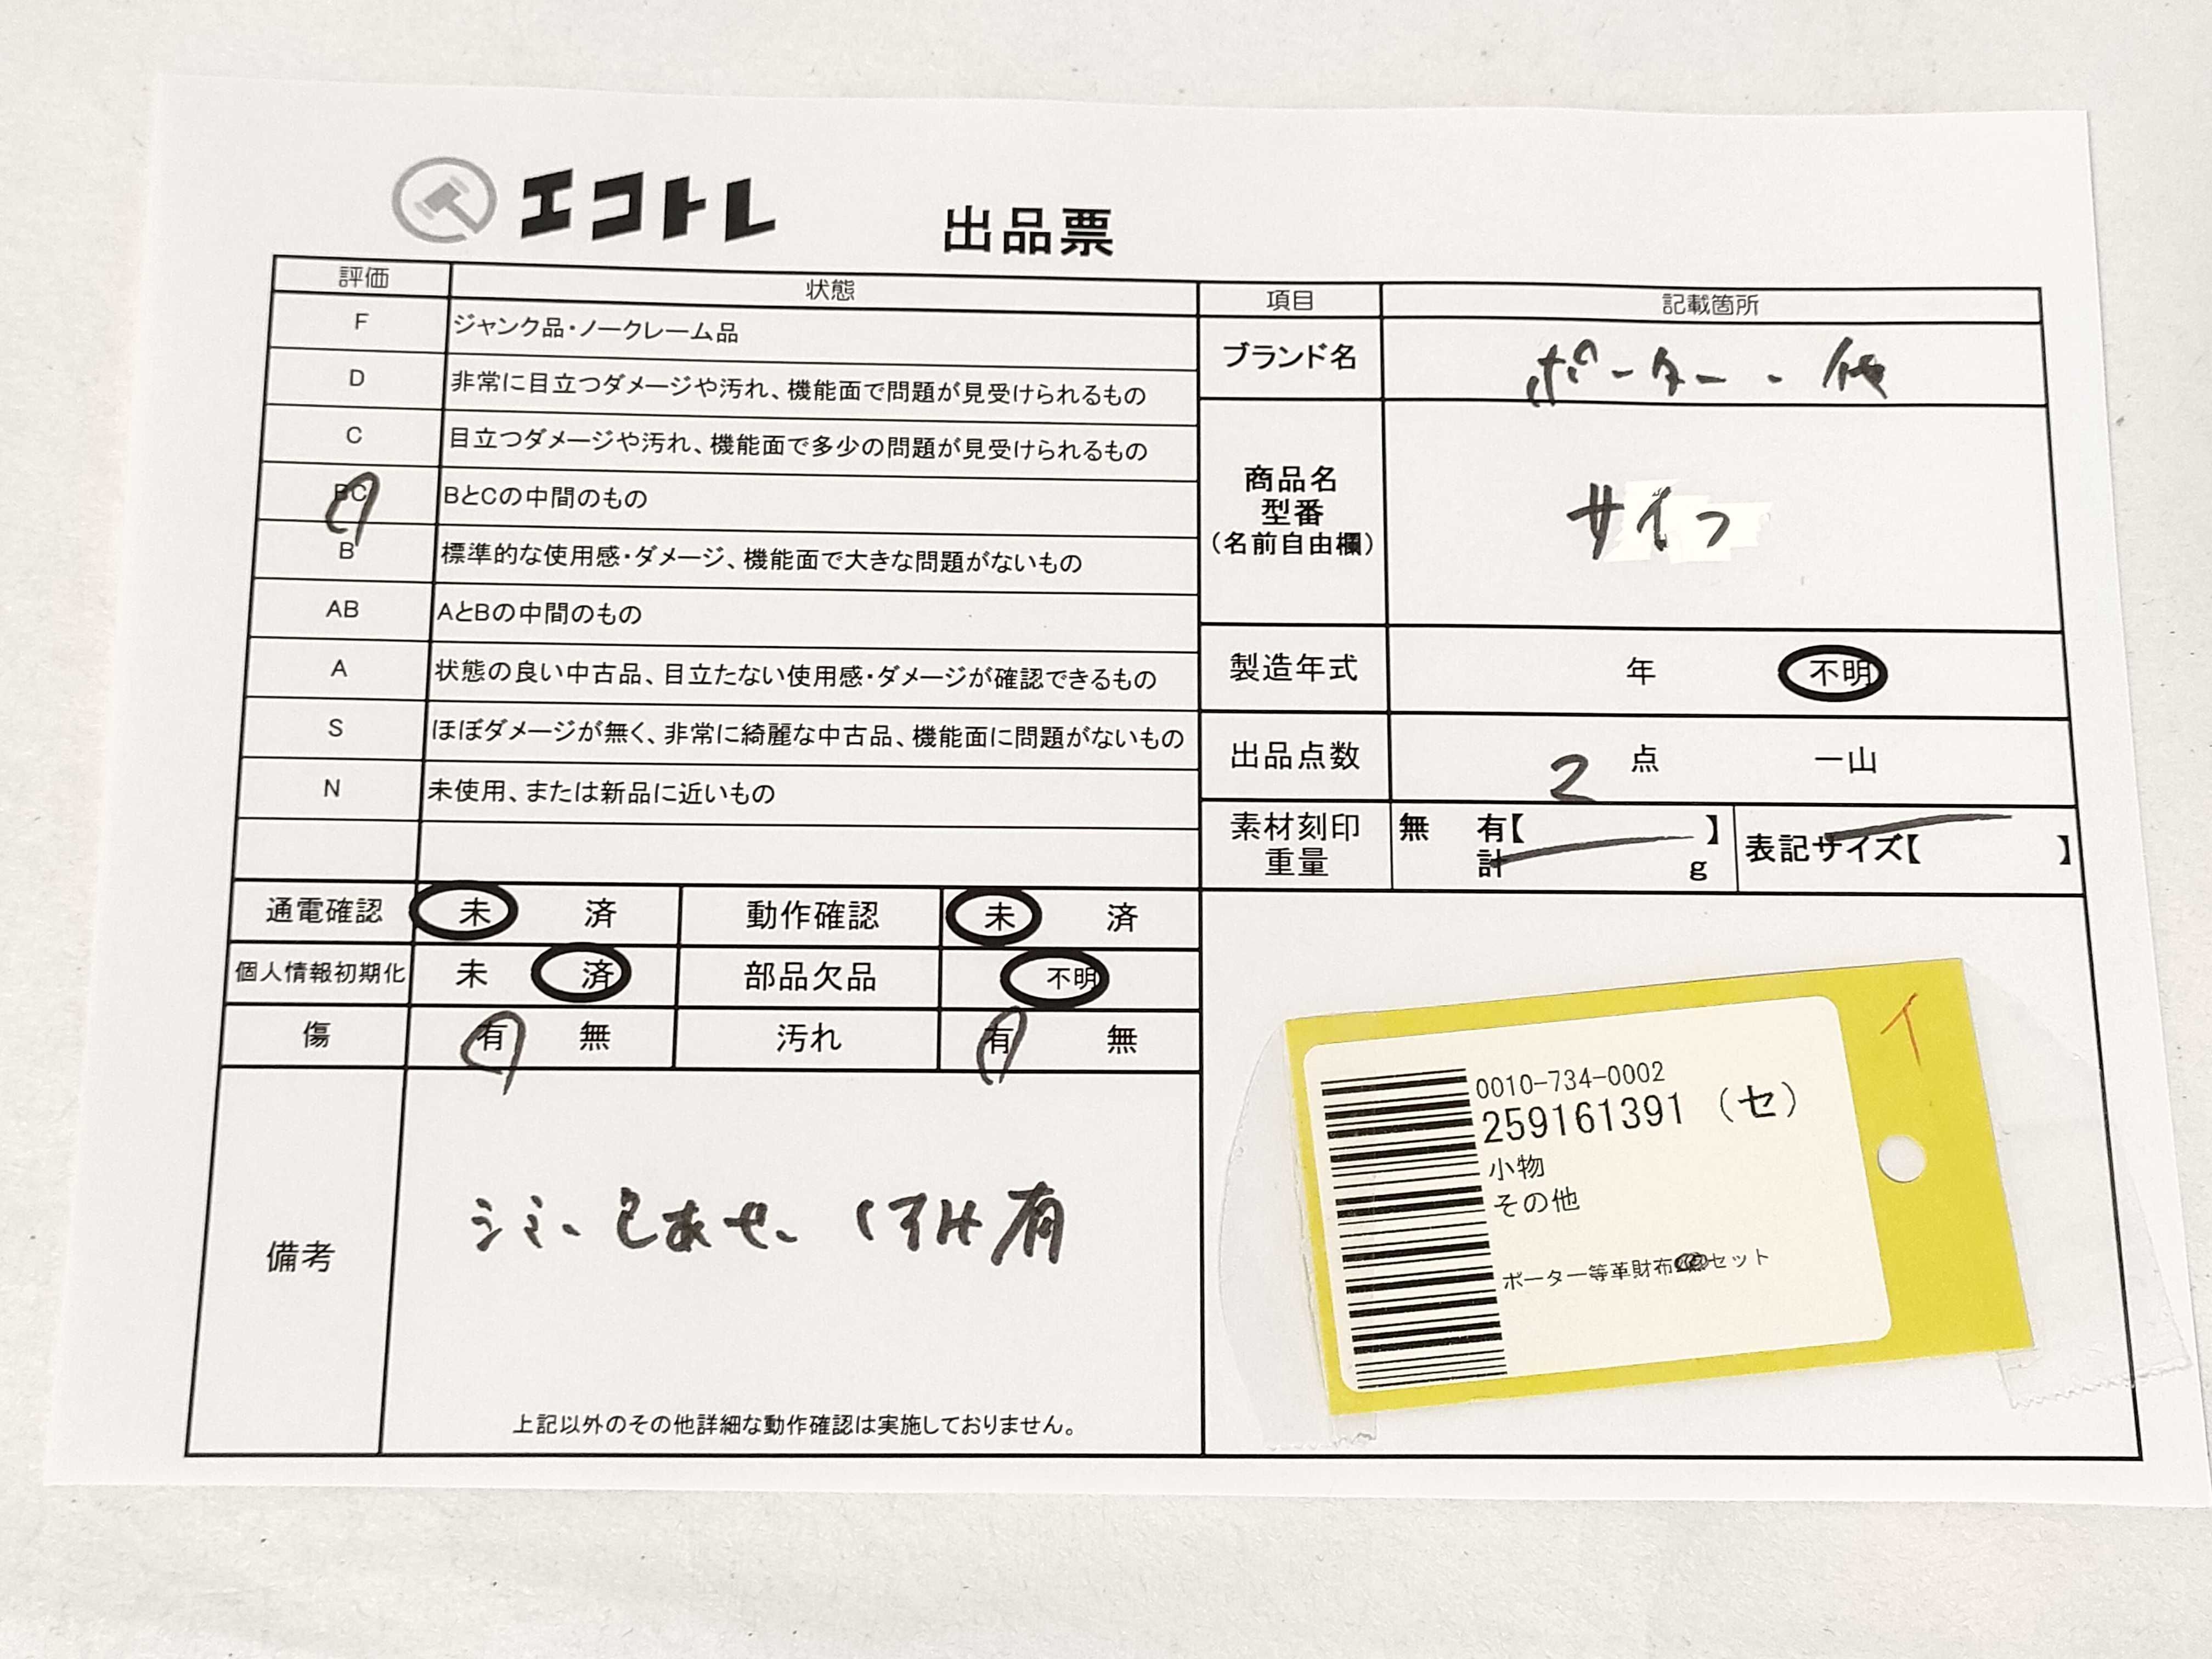 エコトレ 出品票
評価 状態
F ジャンク品・ノークレーム品
D 非常に目立つダメージや汚れ、機能面で問題が見受けられるもの
C 目立つダメージや汚れ、機能面で多少の問題が見受けられるもの
BC BとCの中間のもの
B 標準的な使用感・ダメージ、機能面で大きな問題がないもの
AB AとBの中間のもの
A 状態の良い中古品、目立たない使用感・ダメージが確認できるもの
S ほぼダメージが無く、非常に綺麗な中古品、機能面に問題がないもの
N 未使用、または新品に近いもの
項目 記載箇所
ブランド名 ポーター・他
商品名
型番
(名前自由欄)
サイフ
製造年式 年 不明
出品点数 2 点 一山
素材刻印 無 有【 】
重量 計 g
表記サイズ【 】
通電確認 未 済 動作確認 未 済
個人情報初期化 未 済 部品欠品 不明
傷 有 無 汚れ 有 無
備考
シミ、色あせ、くすみ有
上記以外のその他詳細な動作確認は実施しておりません。
イ
0010-734-0002
259161391 (セ)
小物
その他
ポーター等革財布 セット